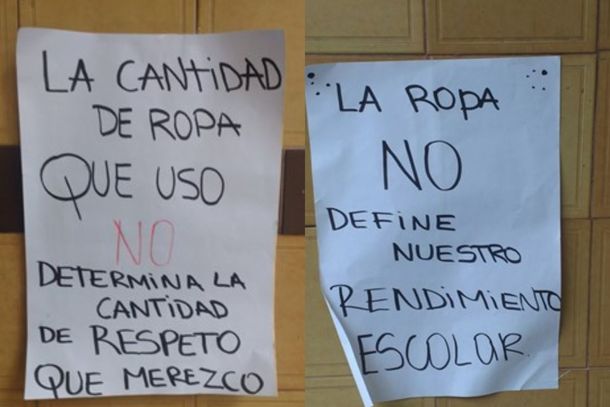 LA CANTIDAD
DE ROPA
QUE USO
NO
DETERMINA LA
CANTIDAD
DE RESPETO
QUE MEREZCO
LA ROPA
NO
DEFINE
NUESTRO
RENDIMIENTO
ESCOLAR